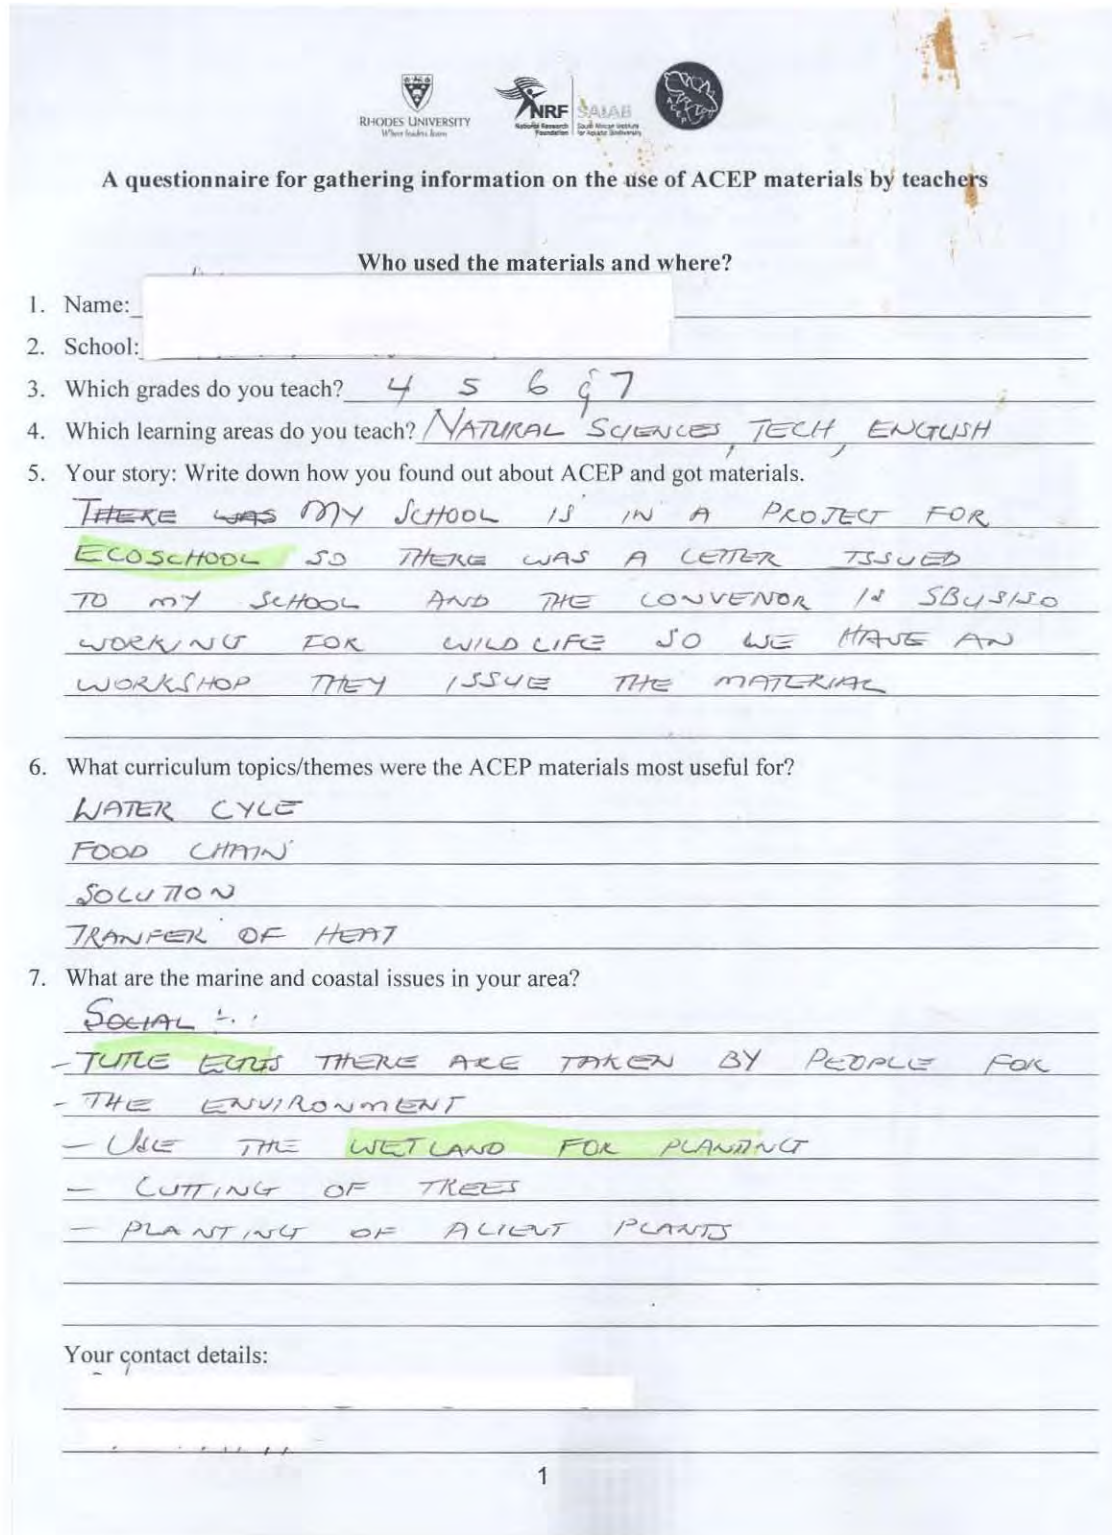 RHODES UNIVERSITY
Where leaders learn
NRF
National Research
Foundation
SAIAB
South African Institute
for Aquatic Biodiversity
ACEP
A questionnaire for gathering information on the use of ACEP materials by teachers
Who used the materials and where?
1. Name:
2. School:
3. Which grades do you teach? 4 5 6 & 7
4. Which learning areas do you teach? NATURAL SCIENCES, TECH, ENGLISH
5. Your story: Write down how you found out about ACEP and got materials.
THERE WAS MY SCHOOL IS IN A PROJECT FOR
ECOSCHOOL SO THERE WAS A LETTER ISSUED
TO MY SCHOOL AND THE CONVENOR IS SBUSISO
WORKING FOR WILDLIFE SO WE HAVE AN
WORKSHOP THEY ISSUE THE MATERIAL
6. What curriculum topics/themes were the ACEP materials most useful for?
WATER CYLE
FOOD CHAIN
SOLUTION
TRANFER OF HEAT
7. What are the marine and coastal issues in your area?
SOCIAL
- TUTLE EGGS THERE ARE TAKEN BY PEOPLE FOR
- THE ENVIRONMENT
- USE THE WETLAND FOR PLANTING
- CUTTING OF TREES
- PLANTING OF ALIENT PLANTS
Your contact details:
1